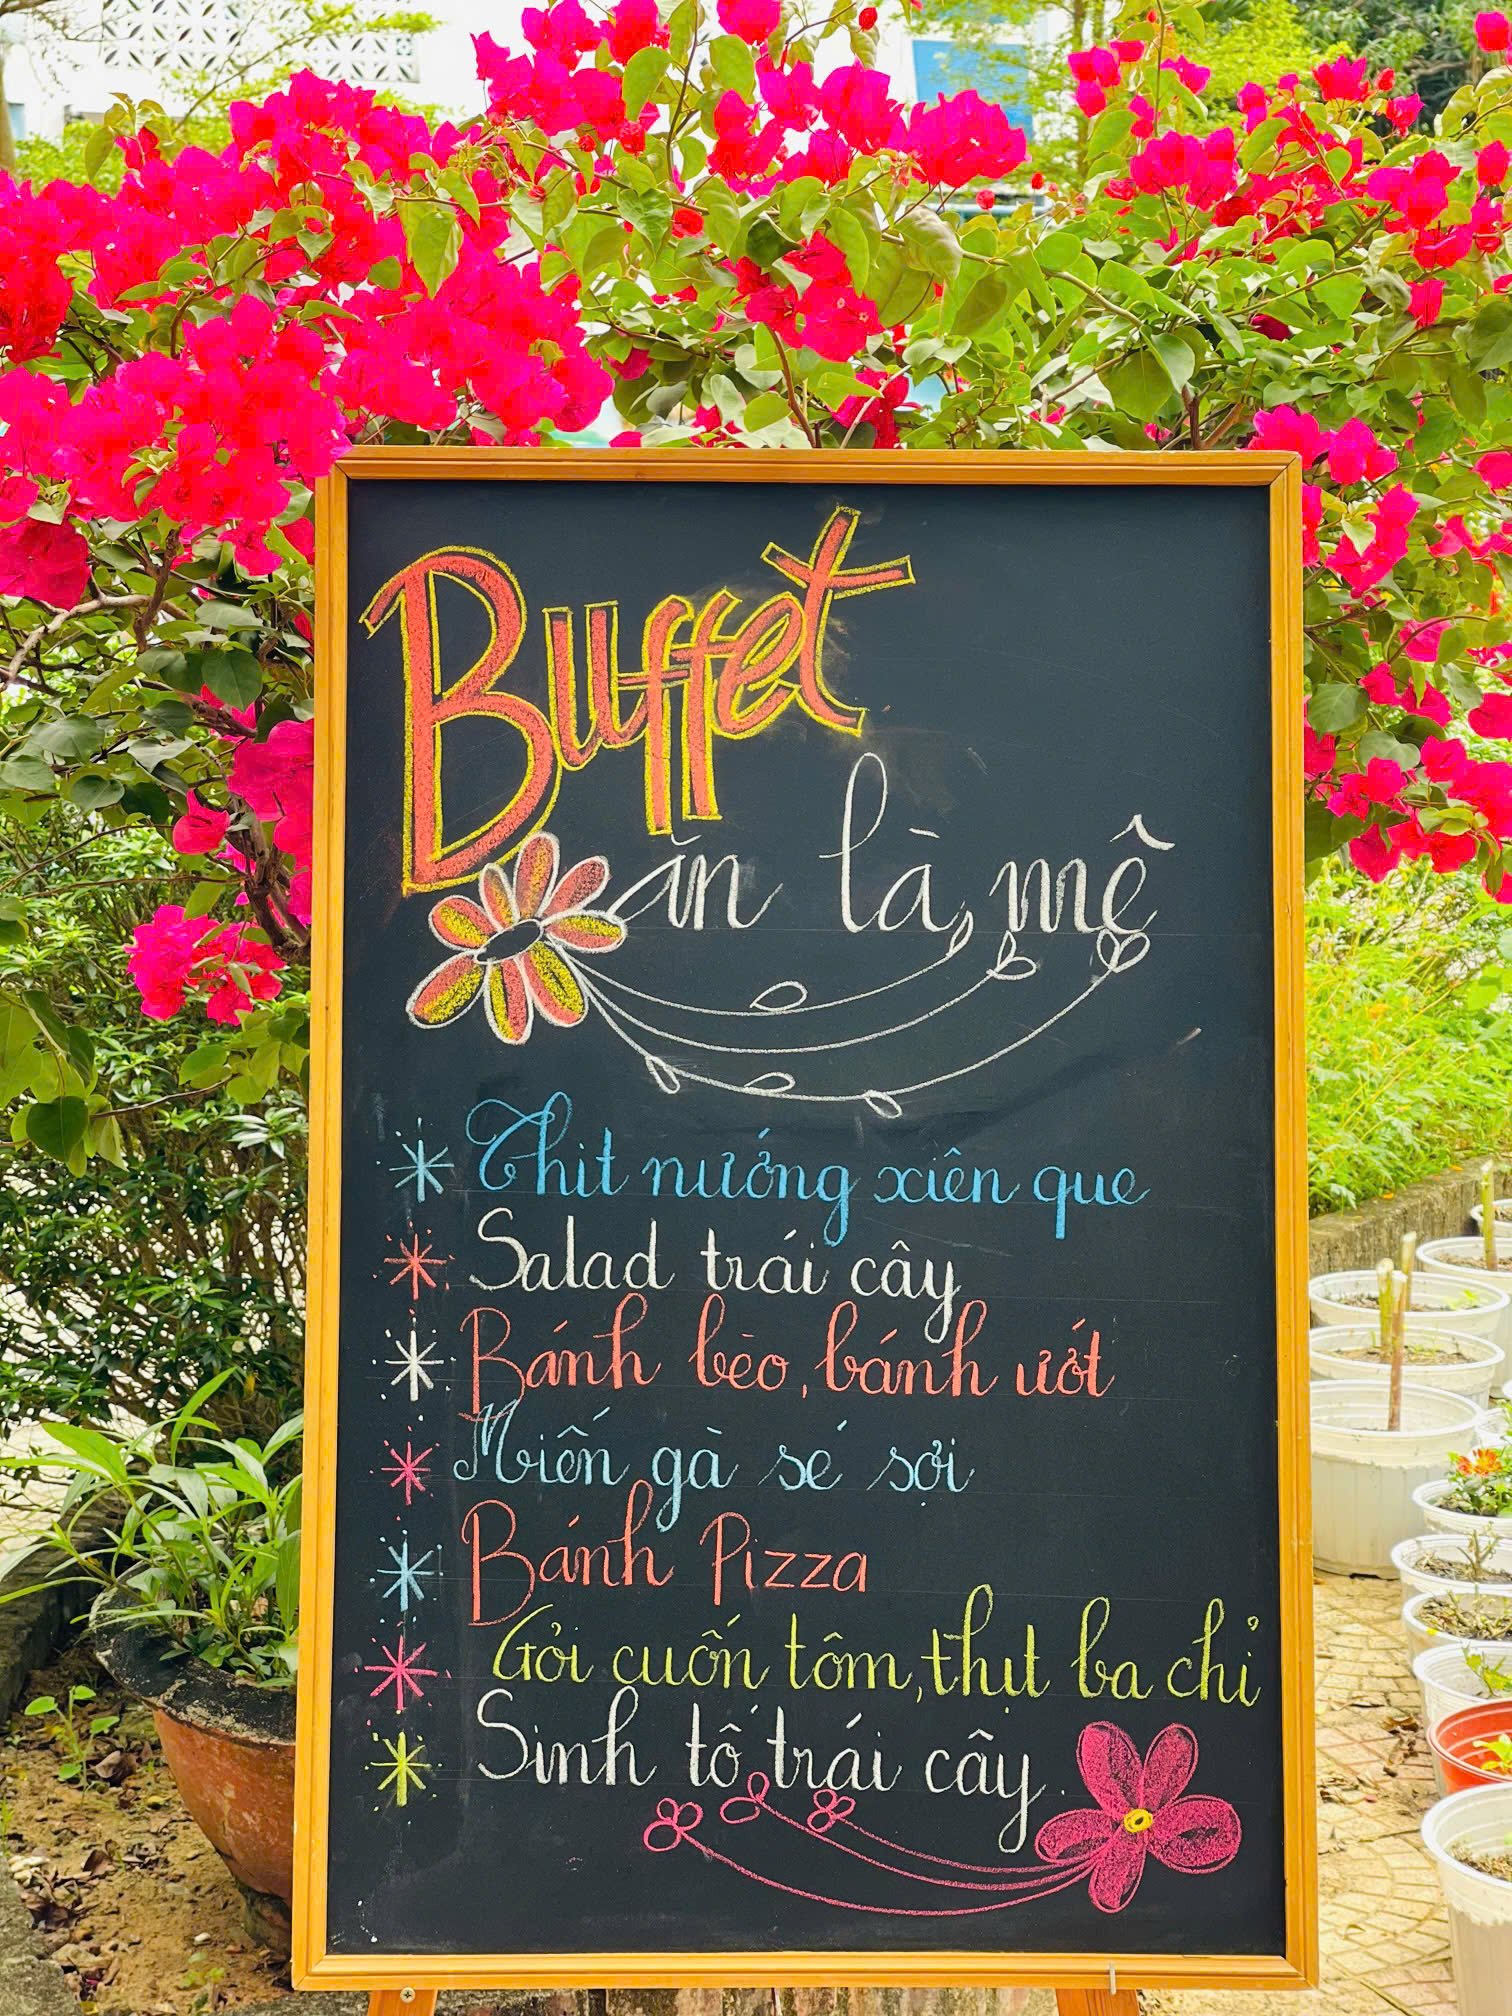 Buffet
ăn là mê
Thit nướng xiên que
Salad trái cây
Bánh bèo, bánh ướt
Miến gà sé sợi
Bánh Pizza
Gỏi cuốn tôm, thịt ba chỉ
Sinh tố trái cây.